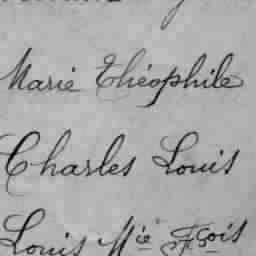 Marie Théophile
Charles Louis
Louis Mie Fçois